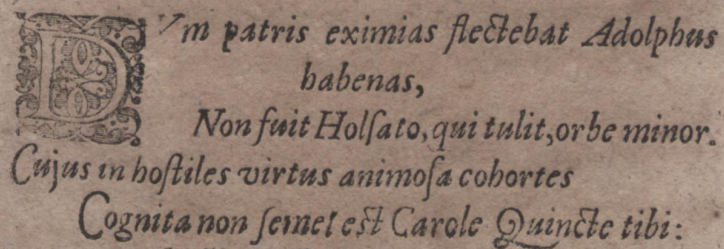 DVm patris eximias flectebat Adolphus
habenas,
Non fuit Holſato, qui tulit, orbe minor.
Cujus in hoſtiles virtus animoſa cohortes
Cognita non ſemel eſt Carole Quincte tibi: